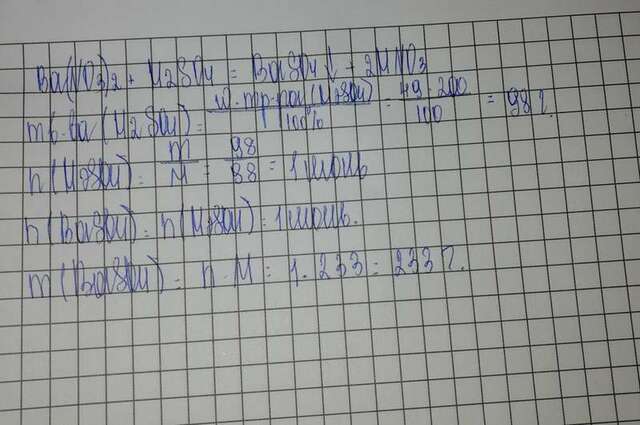 Ba(NO3)2 + H2SO4 = BaSO4↓ + 2HNO3
m в-ва (H2SO4) = w · mр-ра (H2SO4) / 100% = 49 · 200 / 100 = 98 г.
n (H2SO4) = m / M = 98 / 98 = 1 моль
n (BaSO4) = n (H2SO4) = 1 моль.
m (BaSO4) = n · M = 1 · 233 = 233 г.